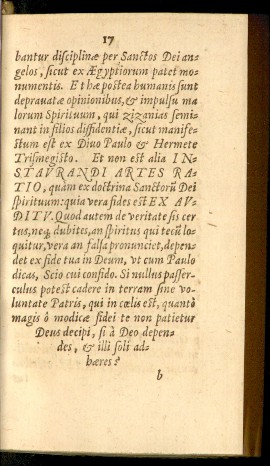 17
bantur disciplinæ per Sanctos Dei an-
gelos, sicut ex Ægyptiorum patet mo-
numentis. Et hæ postea humanis sunt
deprauatæ opinionibus, & impulsu ma
lorum Spirituum, qui zizanias semi-
nant in filios diffidentiæ, sicut manife-
stum est ex Diuo Paulo & Hermete
Trismegisto. Et non est alia IN-
STAVRANDI ARTES RA-
TIO, quàm ex doctrina Sanctorũ Dei
spirituum: quia vera fides est EX AV-
DITV. Quod autem de veritate sis cer
tus, neq; dubites, an spiritus qui tecũ lo-
quitur, vera an falsa pronunciet, depen-
det ex fide tua in Deum, vt cum Paulo
dicas, Scio cui confido. Si nullus passer-
culus potest cadere in terram sine vo-
luntate Patris, qui in cœlis est, quantò
magis ô modicæ fidei te non patietur
Deus decipi, si à Deo depen-
des, & illi soli ad-
hæres?
b